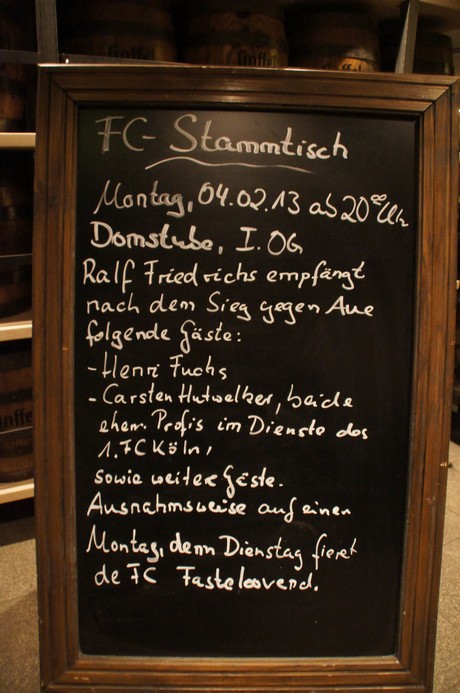 Gaffel
FC-Stammtisch
Montag, 04.02.13 ab 20⁰⁰ Uhr
Domstube, I. OG
Ralf Friedrichs empfängt
nach dem Sieg gegen Aue
folgende Gäste:
- Henri Fuchs
- Carsten Hutwelker, beide
ehem. Profis im Dienste des
1. FC Köln,
sowie weiter Gäste.
Ausnahmsweise auf einen
Montag, denn Dienstag fiert
de FC Fastelovend.